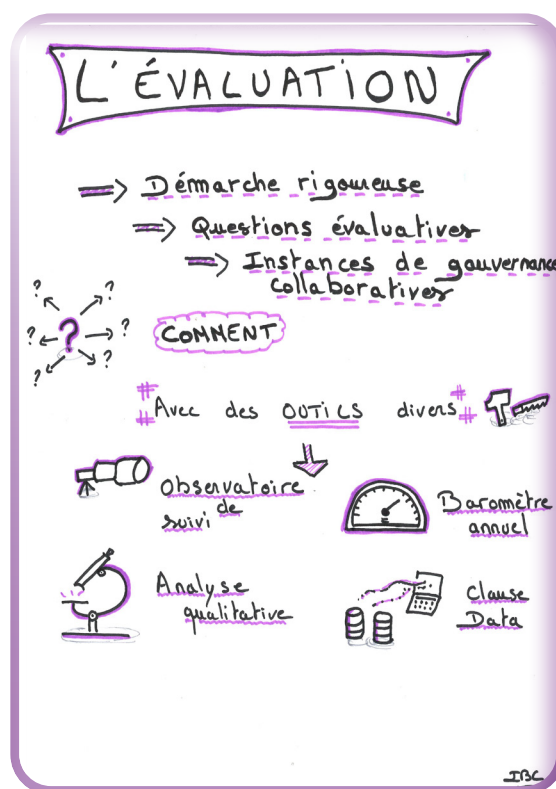 L'ÉVALUATION
=> Démarche rigoureuse
=> Questions évaluatives
=> Instances de gouvernance
collaboratives
? ?
? ? ?
? ?
COMMENT
# Avec des OUTILS divers #
Observatoire
de
suivi
Baromètre
annuel
Analyse
qualitative
Clause
Data
IBC